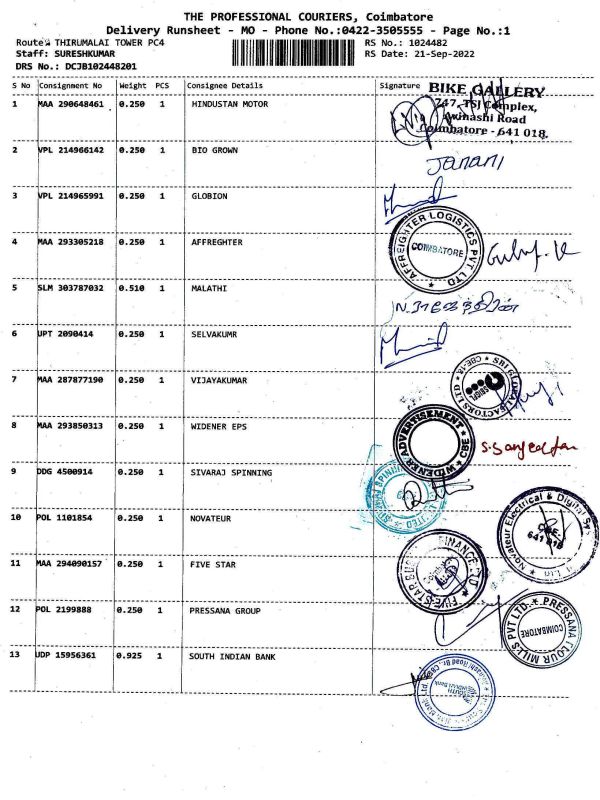 THE PROFESSIONAL COURIERS, Coimbatore
Delivery Runsheet - MO - Phone No.:0422-3505555 - Page No.:1
Route: THIRUMALAI TOWER PC4 RS No.: 1024482
Staff: SURESHKUMAR RS Date: 21-Sep-2022
DRS No.: DCJB102448201
S No Consignment No Weight PCS Consignee Details Signature
BIKE GALLERY
747, TSJ Complex,
Avinashi Road
Coimbatore - 641 018.
1 MAA 290648461 0.250 1 HINDUSTAN MOTOR
2 VPL 214966142 0.250 1 BIO GROWN Janani
3 VPL 214965991 0.250 1 GLOBION
4 MAA 293305218 0.250 1 AFFREGHTER AFFREIGHTER LOGISTICS PVT LTD COIMBATORE
5 SLM 303787032 0.510 1 MALATHI
6 UPT 2090414 0.250 1 SELVAKUMR
7 MAA 287877190 0.250 1 VIJAYAKUMAR
8 MAA 293850313 0.250 1 WIDENER EPS WIDENER ADVERTISEMENT CBE
9 DDG 4500914 0.250 1 SIVARAJ SPINNING
10 POL 1101854 0.250 1 NOVATEUR Novateur Electrical & Digital CBE. 641 018
11 MAA 294090157 0.250 1 FIVE STAR
12 POL 2199888 0.250 1 PRESSANA GROUP PRESSANA FLOUR MILLS PVT LTD. COIMBATORE
13 UDP 15956361 0.925 1 SOUTH INDIAN BANK